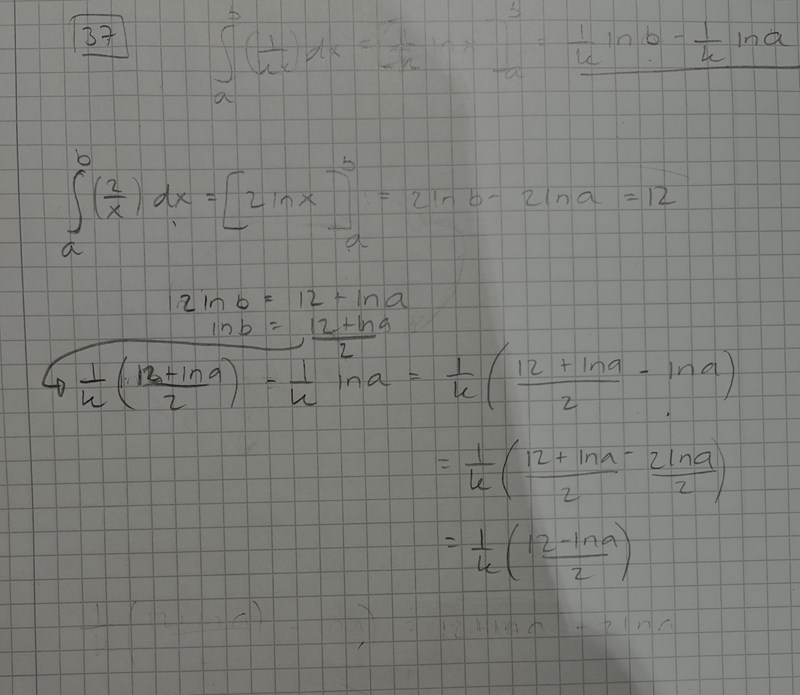 37
∫ₐᵇ (1/kx) dx = 1/k ln x ᵇₐ = 1/k ln b - 1/k ln a
∫ₐᵇ (2/x) dx = [2 ln x]ᵇₐ = 2 ln b - 2 ln a = 12
2 ln b = 12 + ln a
ln b = (12 + ln a)/2
1/k ((12 + ln a)/2) = 1/k ln a = 1/k ((12 + ln a)/2 - ln a)
= 1/k ((12 + ln a)/2 - (2 ln a)/2)
= 1/k ((12 - ln a)/2)